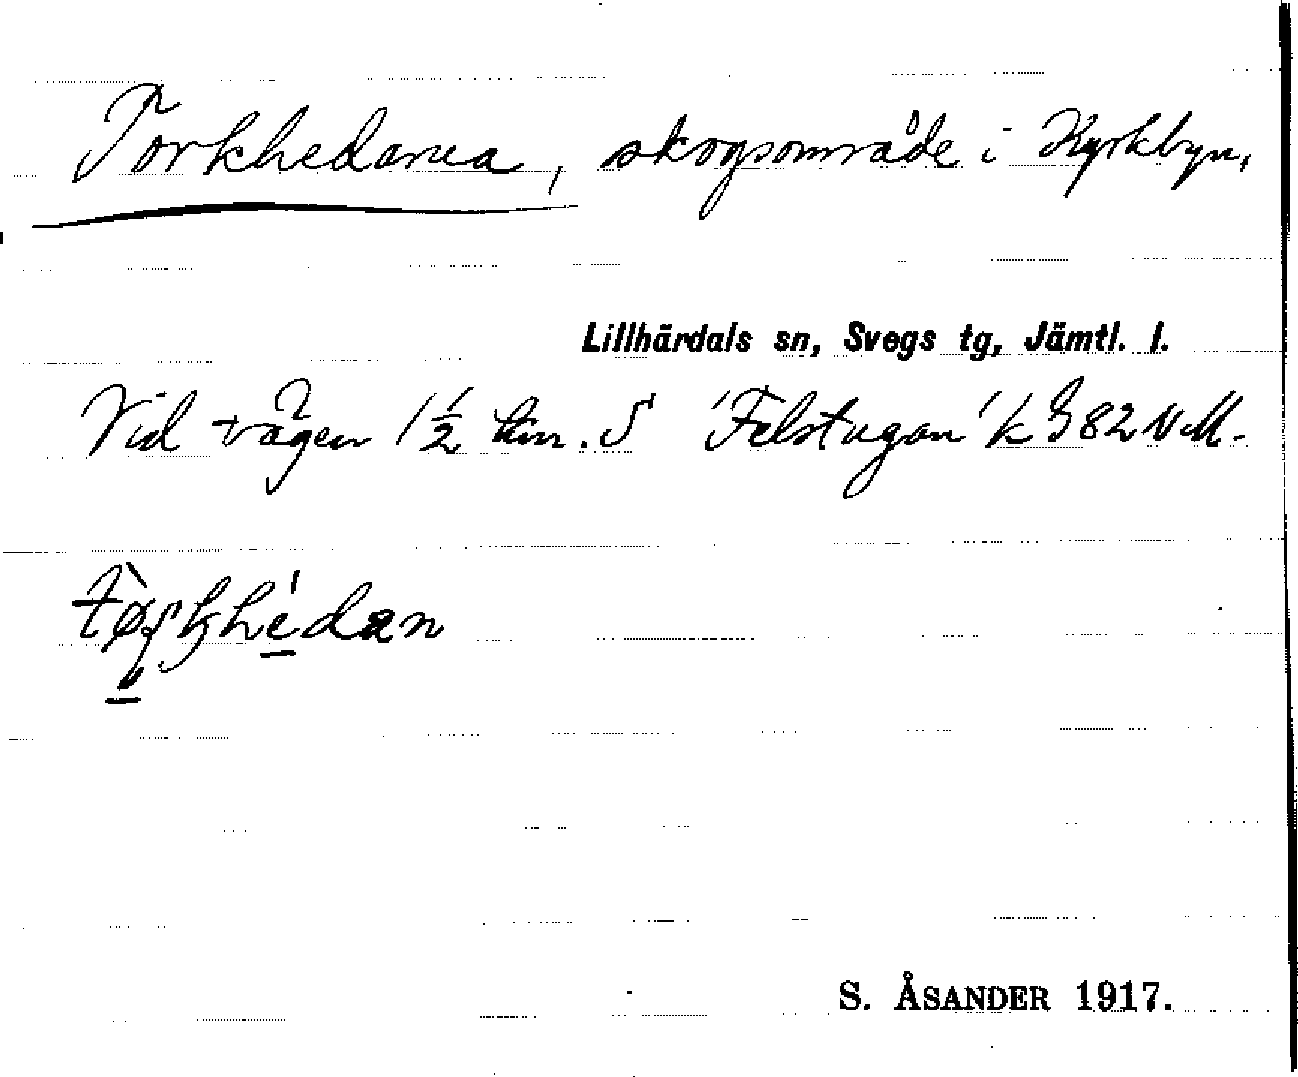 Torkhedarna, skogsområde i Kyrkbyn,
Lillhärdals sn, Svegs tg, Jämtl. l.
Vid vägen 1½ km. S 'Felstugan' k 382 NM.
S. ÅSANDER 1917.